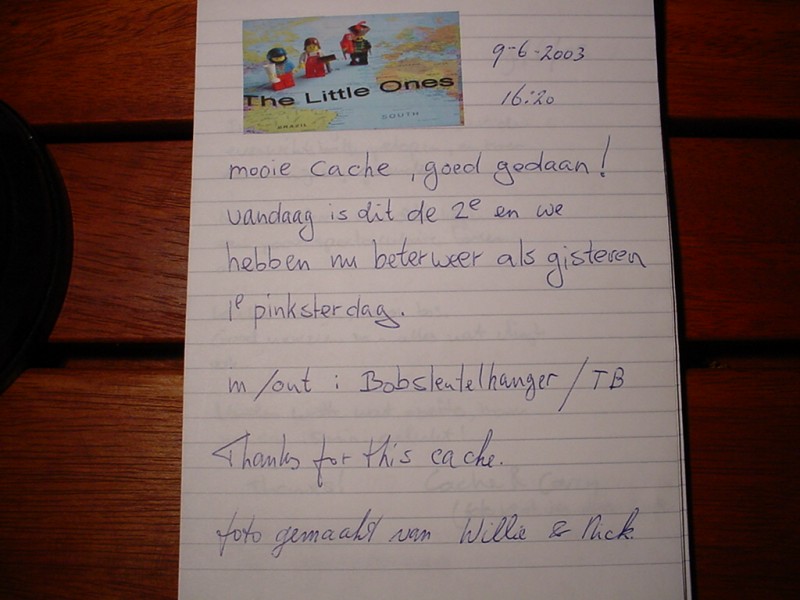 The Little Ones
BRAZIL
SOUTH
9-6-2003
16:20
mooie cache, goed gedaan!
vandaag is dit de 2e en we
hebben nu beter weer als gisteren
1e pinksterdag.
in/out : Bobsleutelhanger/TB
Thanks for this cache.
foto gemaakt van Willie & Nick.